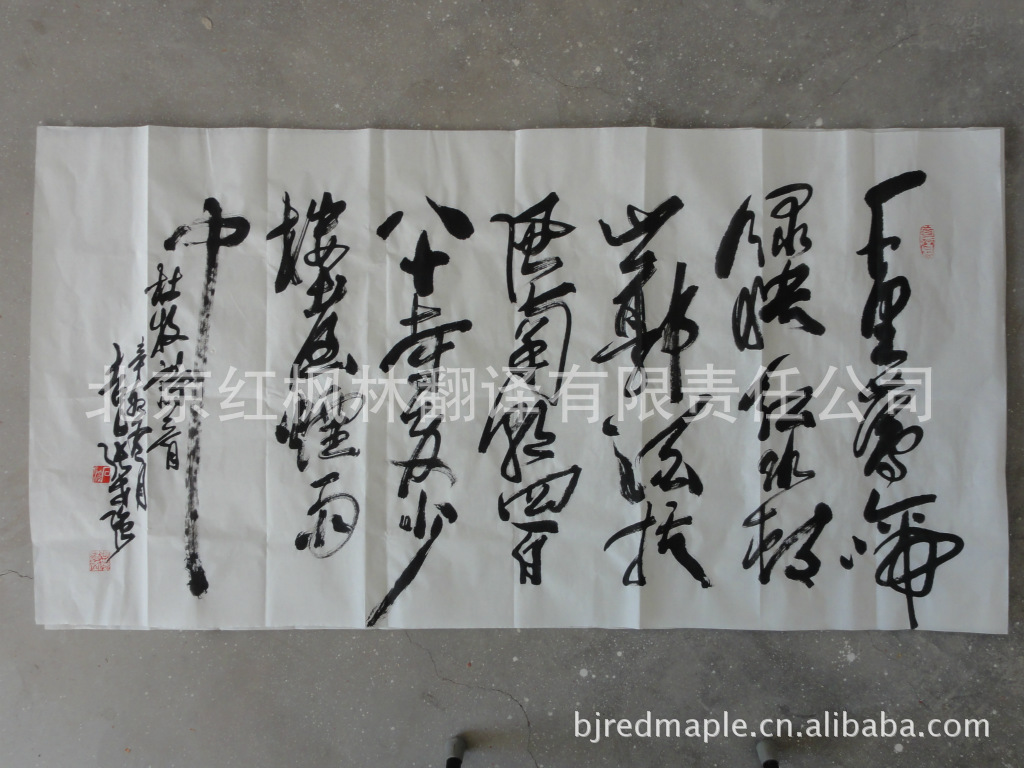 千里鶯啼
綠映紅水村
山郭酒旗
風南朝四百
八十寺多少
樓臺煙雨
中
杜牧詩一首
北京红枫林翻译有限责任公司
bjredmaple.cn.alibaba.com